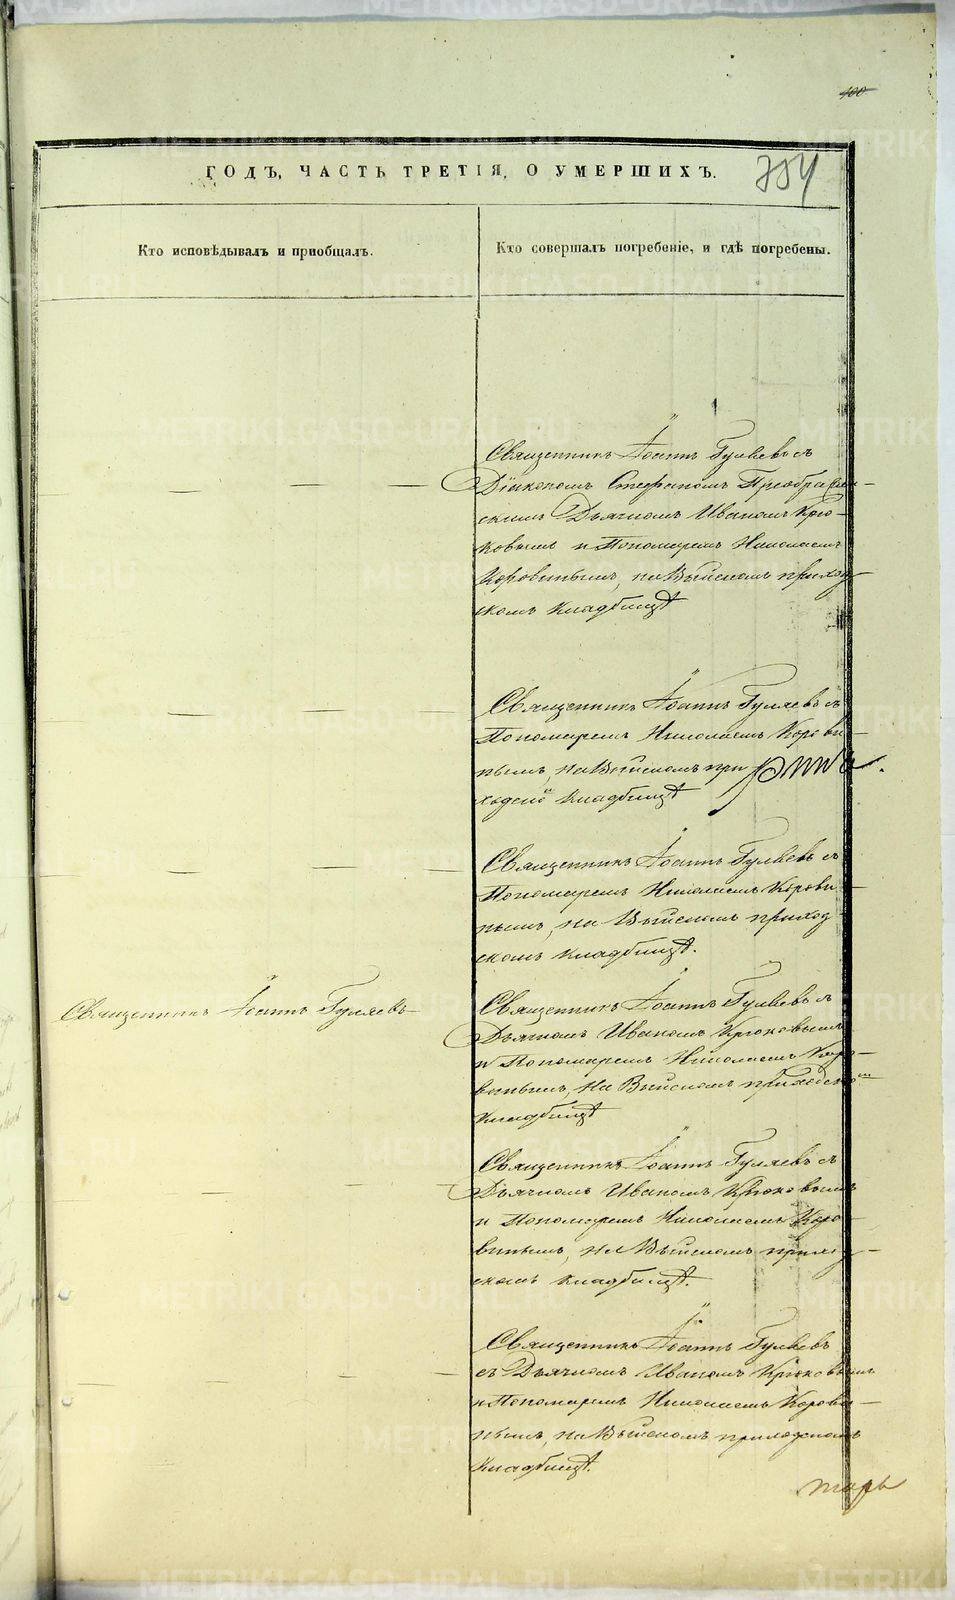 400
ГОДЪ, ЧАСТЬ ТРЕТІЯ, О УМЕРШИХЪ.
Кто исповѣдывалъ и пріобщалъ.
Кто совершалъ погребеніе, и гдѣ погребены.
Священникъ Іоаннъ Гуляевъ съ
Діакономъ Стефаномъ Преображен-
скимъ Дьячкомъ Иваномъ Крю-
ковымъ и Пономаремъ Николаемъ
Коровинымъ, на Выйскомъ приход-
скомъ кладбищѣ
Священникъ Іоаннъ Гуляевъ съ
Пономаремъ Николаемъ Корови-
нымъ, на Выйскомъ при
ходском кладбищѣ
Священникъ Іоаннъ Гуляевъ съ
Пономаремъ Николаемъ Корови-
нымъ, на Выйскомъ приход-
скомъ кладбищѣ.
Священникъ Іоаннъ Гуляевъ
Священникъ Іоаннъ Гуляевъ съ
Дьячкомъ Иваномъ Крюковымъ
и Пономаремъ Николаемъ Коро-
винымъ, на Выйскомъ приходском
кладбищѣ
Священникъ Іоаннъ Гуляевъ съ
Дьячкомъ Иваномъ Крюковымъ
и Пономаремъ Николаемъ Коро-
винымъ, на Выйскомъ приход-
скомъ кладбищѣ.
Священникъ Іоаннъ Гуляевъ
съ Дьячкомъ Иваномъ Крюковымъ
и Пономаремъ Николаемъ Корови-
нымъ, на Выйскомъ приходскомъ
кладбищѣ.
тарь
METRIKI.GASO-URAL.RU